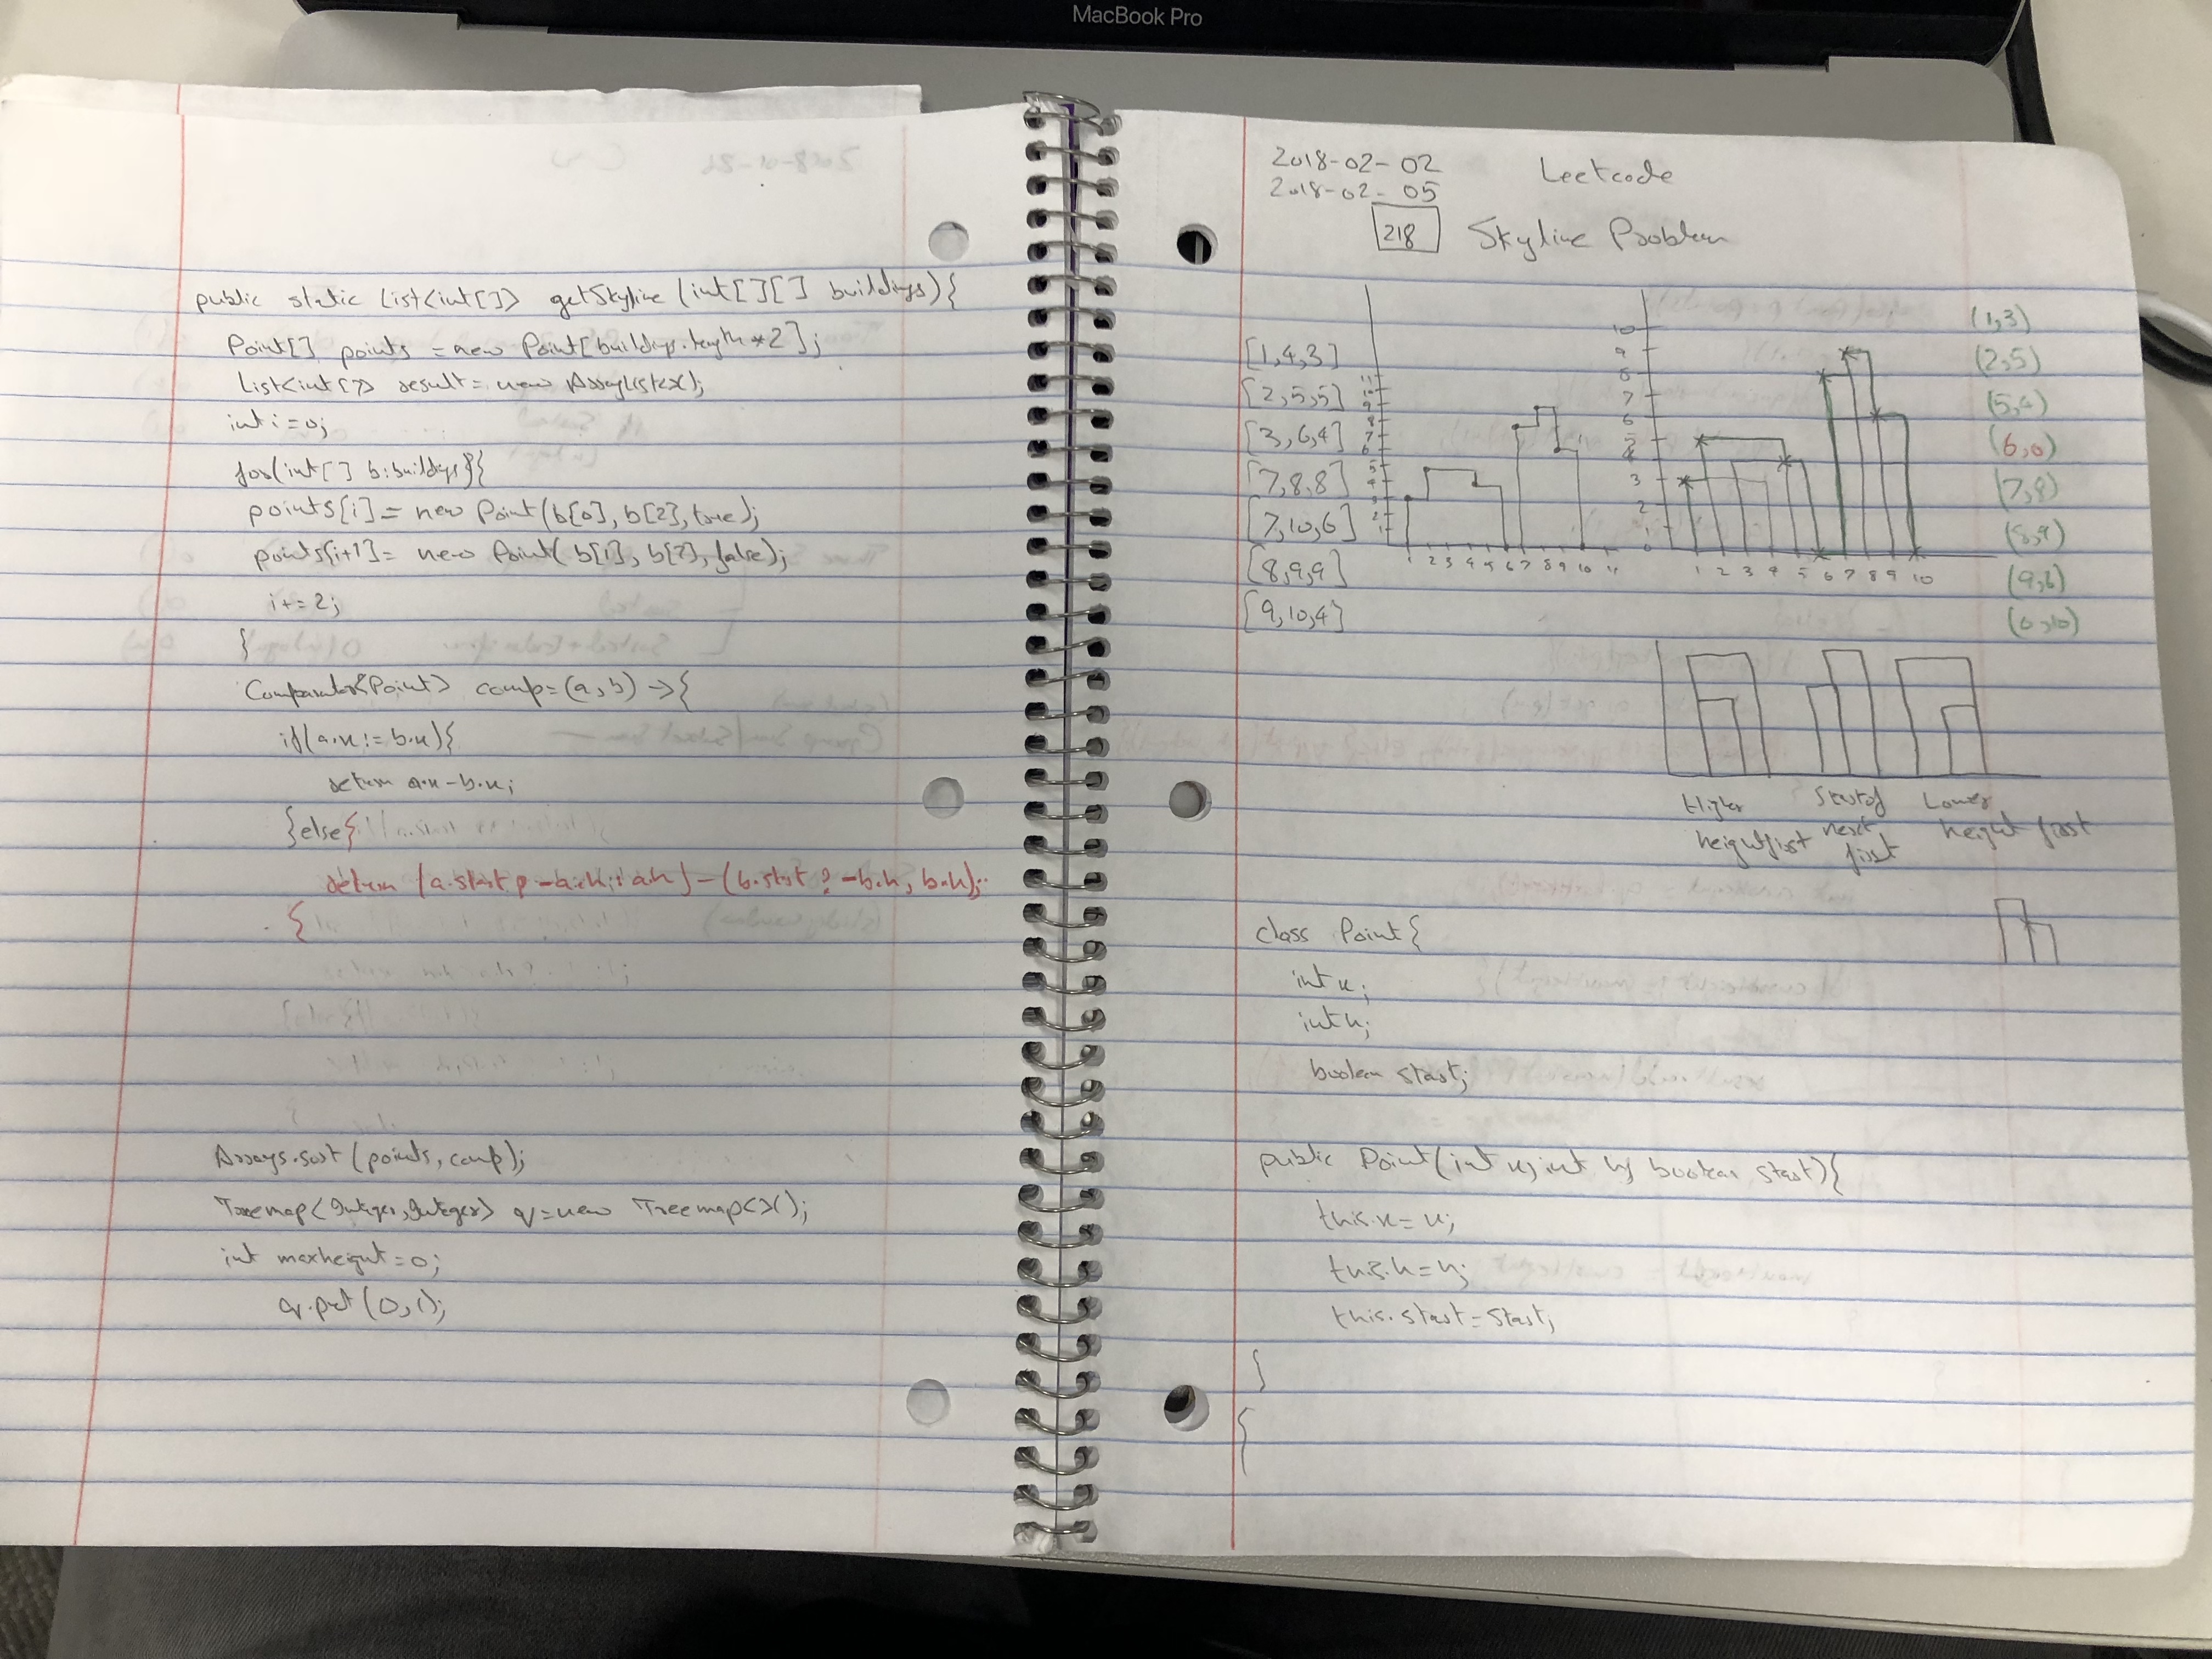 MacBook Pro
public static List<int[]> getSkyline (int[][] buildings){
Point[] points = new Point[buildings.length*2];
List<int[]> result = new ArrayList<>();
int i=0;
for(int[] b:buildings){
points[i] = new Point(b[0], b[2], true);
points[i+1] = new Point(b[1], b[2], false);
i+=2;
}
Comparator<Point> comp=(a,b) ->{
if(a.x != b.x){
return a.x-b.x;
}else{
return (a.start ? -a.h : a.h) - (b.start ? -b.h, b.h);
{
Arrays.sort (points, comp);
Treemap<Integer,Integer> q = new Treemap<>();
int maxheight=0;
q.put(0,1);
2018-02-02
2018-02-05
Leetcode
218 Skyline Problem
[1,4,3]
[2,5,5]
[3,6,4]
[7,8,8]
[7,10,6]
[8,9,9]
[9,10,4]
11
10
9
8
7
6
5
4
3
2
1
1 2 3 4 5 6 7 8 9 10 11
10
9
8
7
6
5
4
3
2
1
0
1 2 3 4 5 6 7 8 9 10
(1,3)
(2,5)
(5,4)
(6,0)
(7,8)
(8,9)
(9,6)
(0,10)
Higher
height first
Start of
next
first
Lower
height first
class Point{
int x;
int h;
boolean start;
public Point(int x, int h, boolean start){
this.x = x;
this.h = h;
this.start = start;
}
{